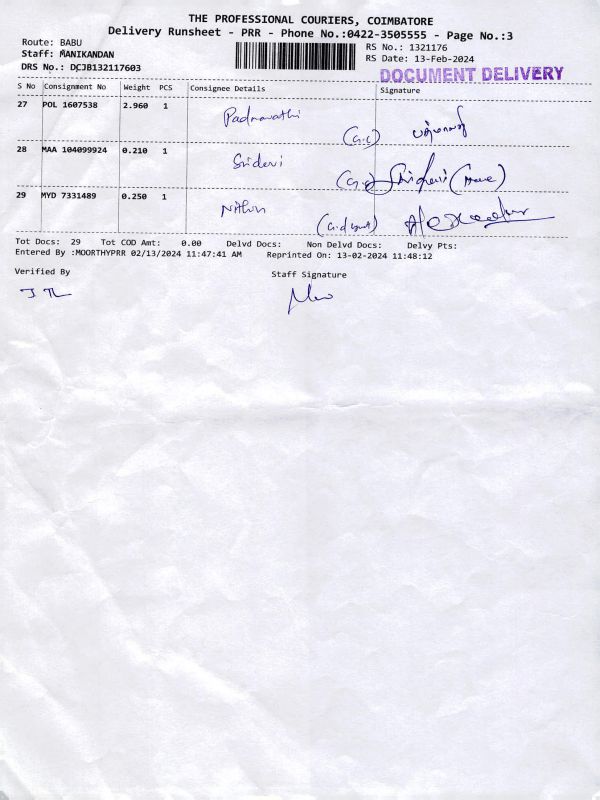 THE PROFESSIONAL COURIERS, COIMBATORE
Delivery Runsheet - PRR - Phone No.:0422-3505555 - Page No.:3
Route: BABU
Staff: MANIKANDAN
DRS No.: DCJB132117603
RS No.: 1321176
RS Date: 13-Feb-2024
DOCUMENT DELIVERY
S No Consignment No Weight PCS Consignee Details Signature
27 POL 1607538 2.960 1 Padmavathi
28 MAA 104099924 0.210 1 Sridevi
29 MYD 7331489 0.250 1 Nithin
Tot Docs: 29 Tot COD Amt: 0.00 Delvd Docs: Non Delvd Docs: Delvy Pts:
Entered By :MOORTHYPRR 02/13/2024 11:47:41 AM Reprinted On: 13-02-2024 11:48:12
Verified By Staff Signature